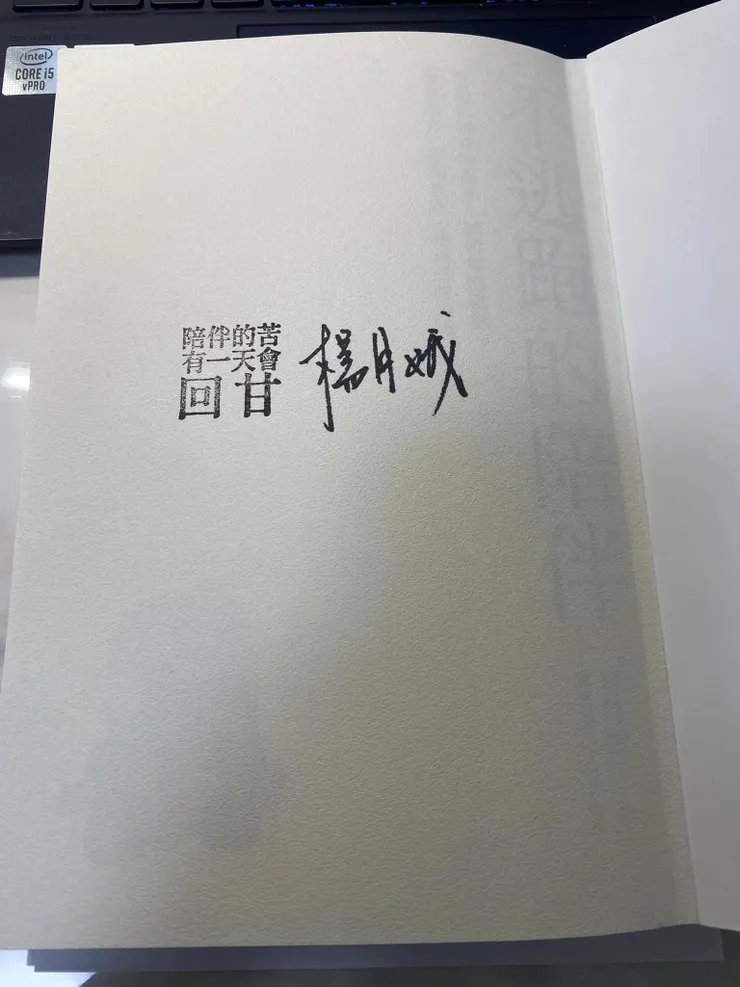 intel
CORE i5
vPRO
陪伴的苦
有一天會
回甘
楊月娥